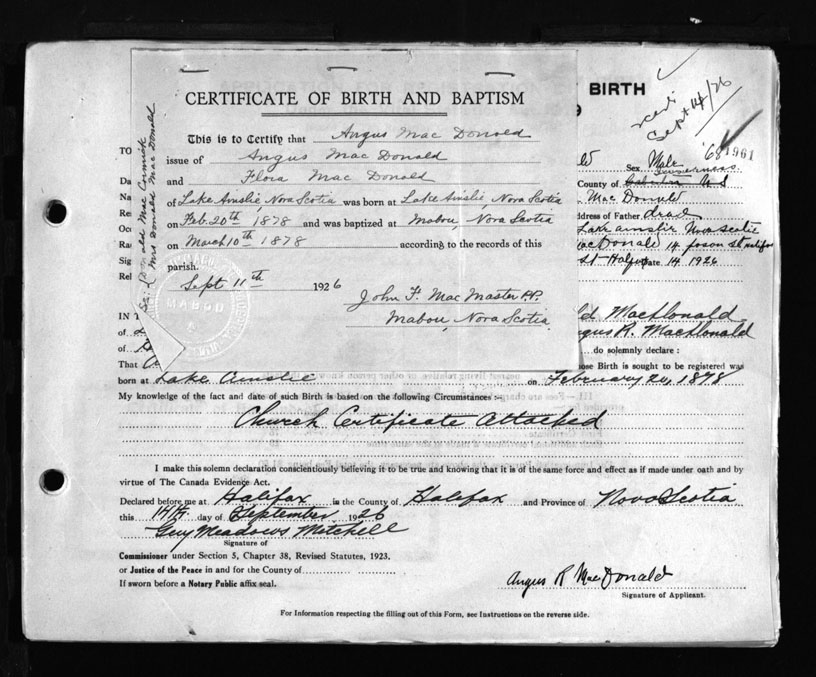 CERTIFICATE OF BIRTH AND BAPTISM
This is to Certify that Angus Mac Donald
issue of Angus Mac Donald
and Flora Mac Donald
of Lake Ainslie Nova Scotia was born at Lake Ainslie, Nova Scotia
on Feb. 20th 1878 and was baptized at Mabou, Nova Scotia
on March 10th 1878 according to the records of this
parish.
Sept 11th 1926
John F. Mac Master P.P.
Mabou, Nova Scotia
Donald Mac Cormick
Mrs Donald Mac Donald
MABOU
BIRTH
Sept 14/26
681961
TO
Sex Male
Da
County of Inverness N S
Na
Mac Donald
Re
Address of Father dead
Oc
Lake Ainslie Nova Scotia
Ra
MacDonald 14 St Halifax
Sig
St Halifax Date 14 1926
Rel
IN T
ld MacDonald
of
Angus R. MacDonald
of
do solemnly declare :
That
whose Birth is sought to be registered was
born at Lake Ainslie on February 20, 1878
My knowledge of the fact and date of such Birth is based on the following Circumstances :-
Church Certificate Attached
I make this solemn declaration conscientiously believing it to be true and knowing that it is of the same force and effect as if made under oath and by
virtue of The Canada Evidence Act.
Declared before me at Halifax in the County of Halifax and Province of Nova Scotia
this 14th day of September 1926
Guy Meadows Mitchell
Signature of
Commissioner under Section 5, Chapter 38, Revised Statutes, 1923.
or Justice of the Peace in and for the County of
If sworn before a Notary Public affix seal.
Angus R MacDonald
Signature of Applicant.
For Information respecting the filling out of this Form, see Instructions on the reverse side.